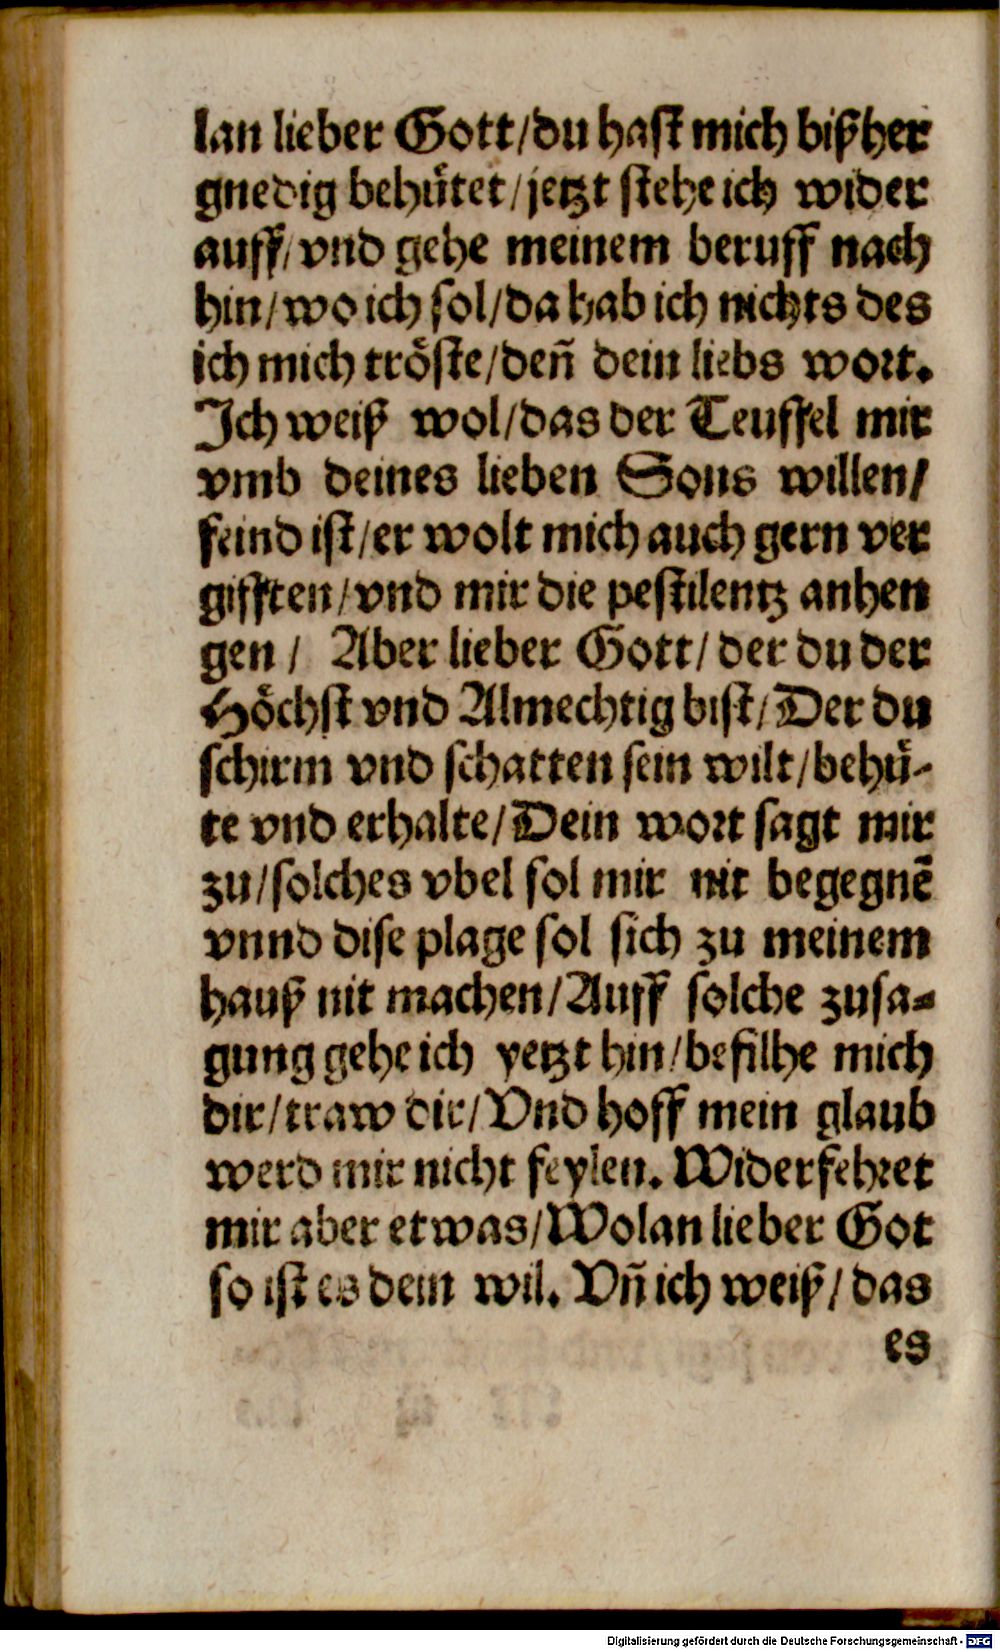 lan lieber Gott/du hast mich bißher
gnedig behuͤtet/jetzt stehe ich wider
auff/vnd gehe meinem beruff nach
hin/wo ich sol/da hab ich nichts des
ich mich troͤste/deñ dein liebs wort.
Ich weiß wol/das der Teuffel mir
vmb deines lieben Sons willen/
feind ist/er wolt mich auch gern ver
gifften/vnd mir die pestilentz anhen
gen/ Aber lieber Gott/der du der
Hoͤchst vnd Almechtig bist/Der du
schirm vnd schatten sein wilt/behuͤ-
te vnd erhalte/Dein wort sagt mir
zu/solches vbel sol mir nit begegnē
vnnd dise plage sol sich zu meinem
hauß nit machen/Auff solche zusa-
gung gehe ich yetzt hin/befilhe mich
dir/traw dir/Vnd hoff mein glaub
werd mir nicht feylen. Widerfehret
mir aber etwas/Wolan lieber Got
so ist es dein wil. Vñ ich weiß/das
es
Digitalisierung gefördert durch die Deutsche Forschungsgemeinschaft - DFG